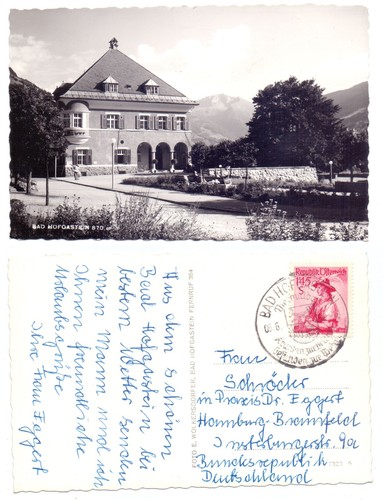 BAD HOFGASTEIN 870 m
Aus dem schönen
Bad Hofgastein bei
bestem Wetter senden
mein Mann und ich
Ihnen freundliche
Urlaubsgrüße
Ihre Frau Eggert
FOTO E. WOLKERSDORFER, BAD HOFGASTEIN FERNRUF 364
BAD HOF
Republik Österreich
1.45
Frau
Schröder
in Praxis Dr. Eggert
Hamburg-Bramfeld
Insterburgerstr. 9a
Bundesrepublik
Deutschland